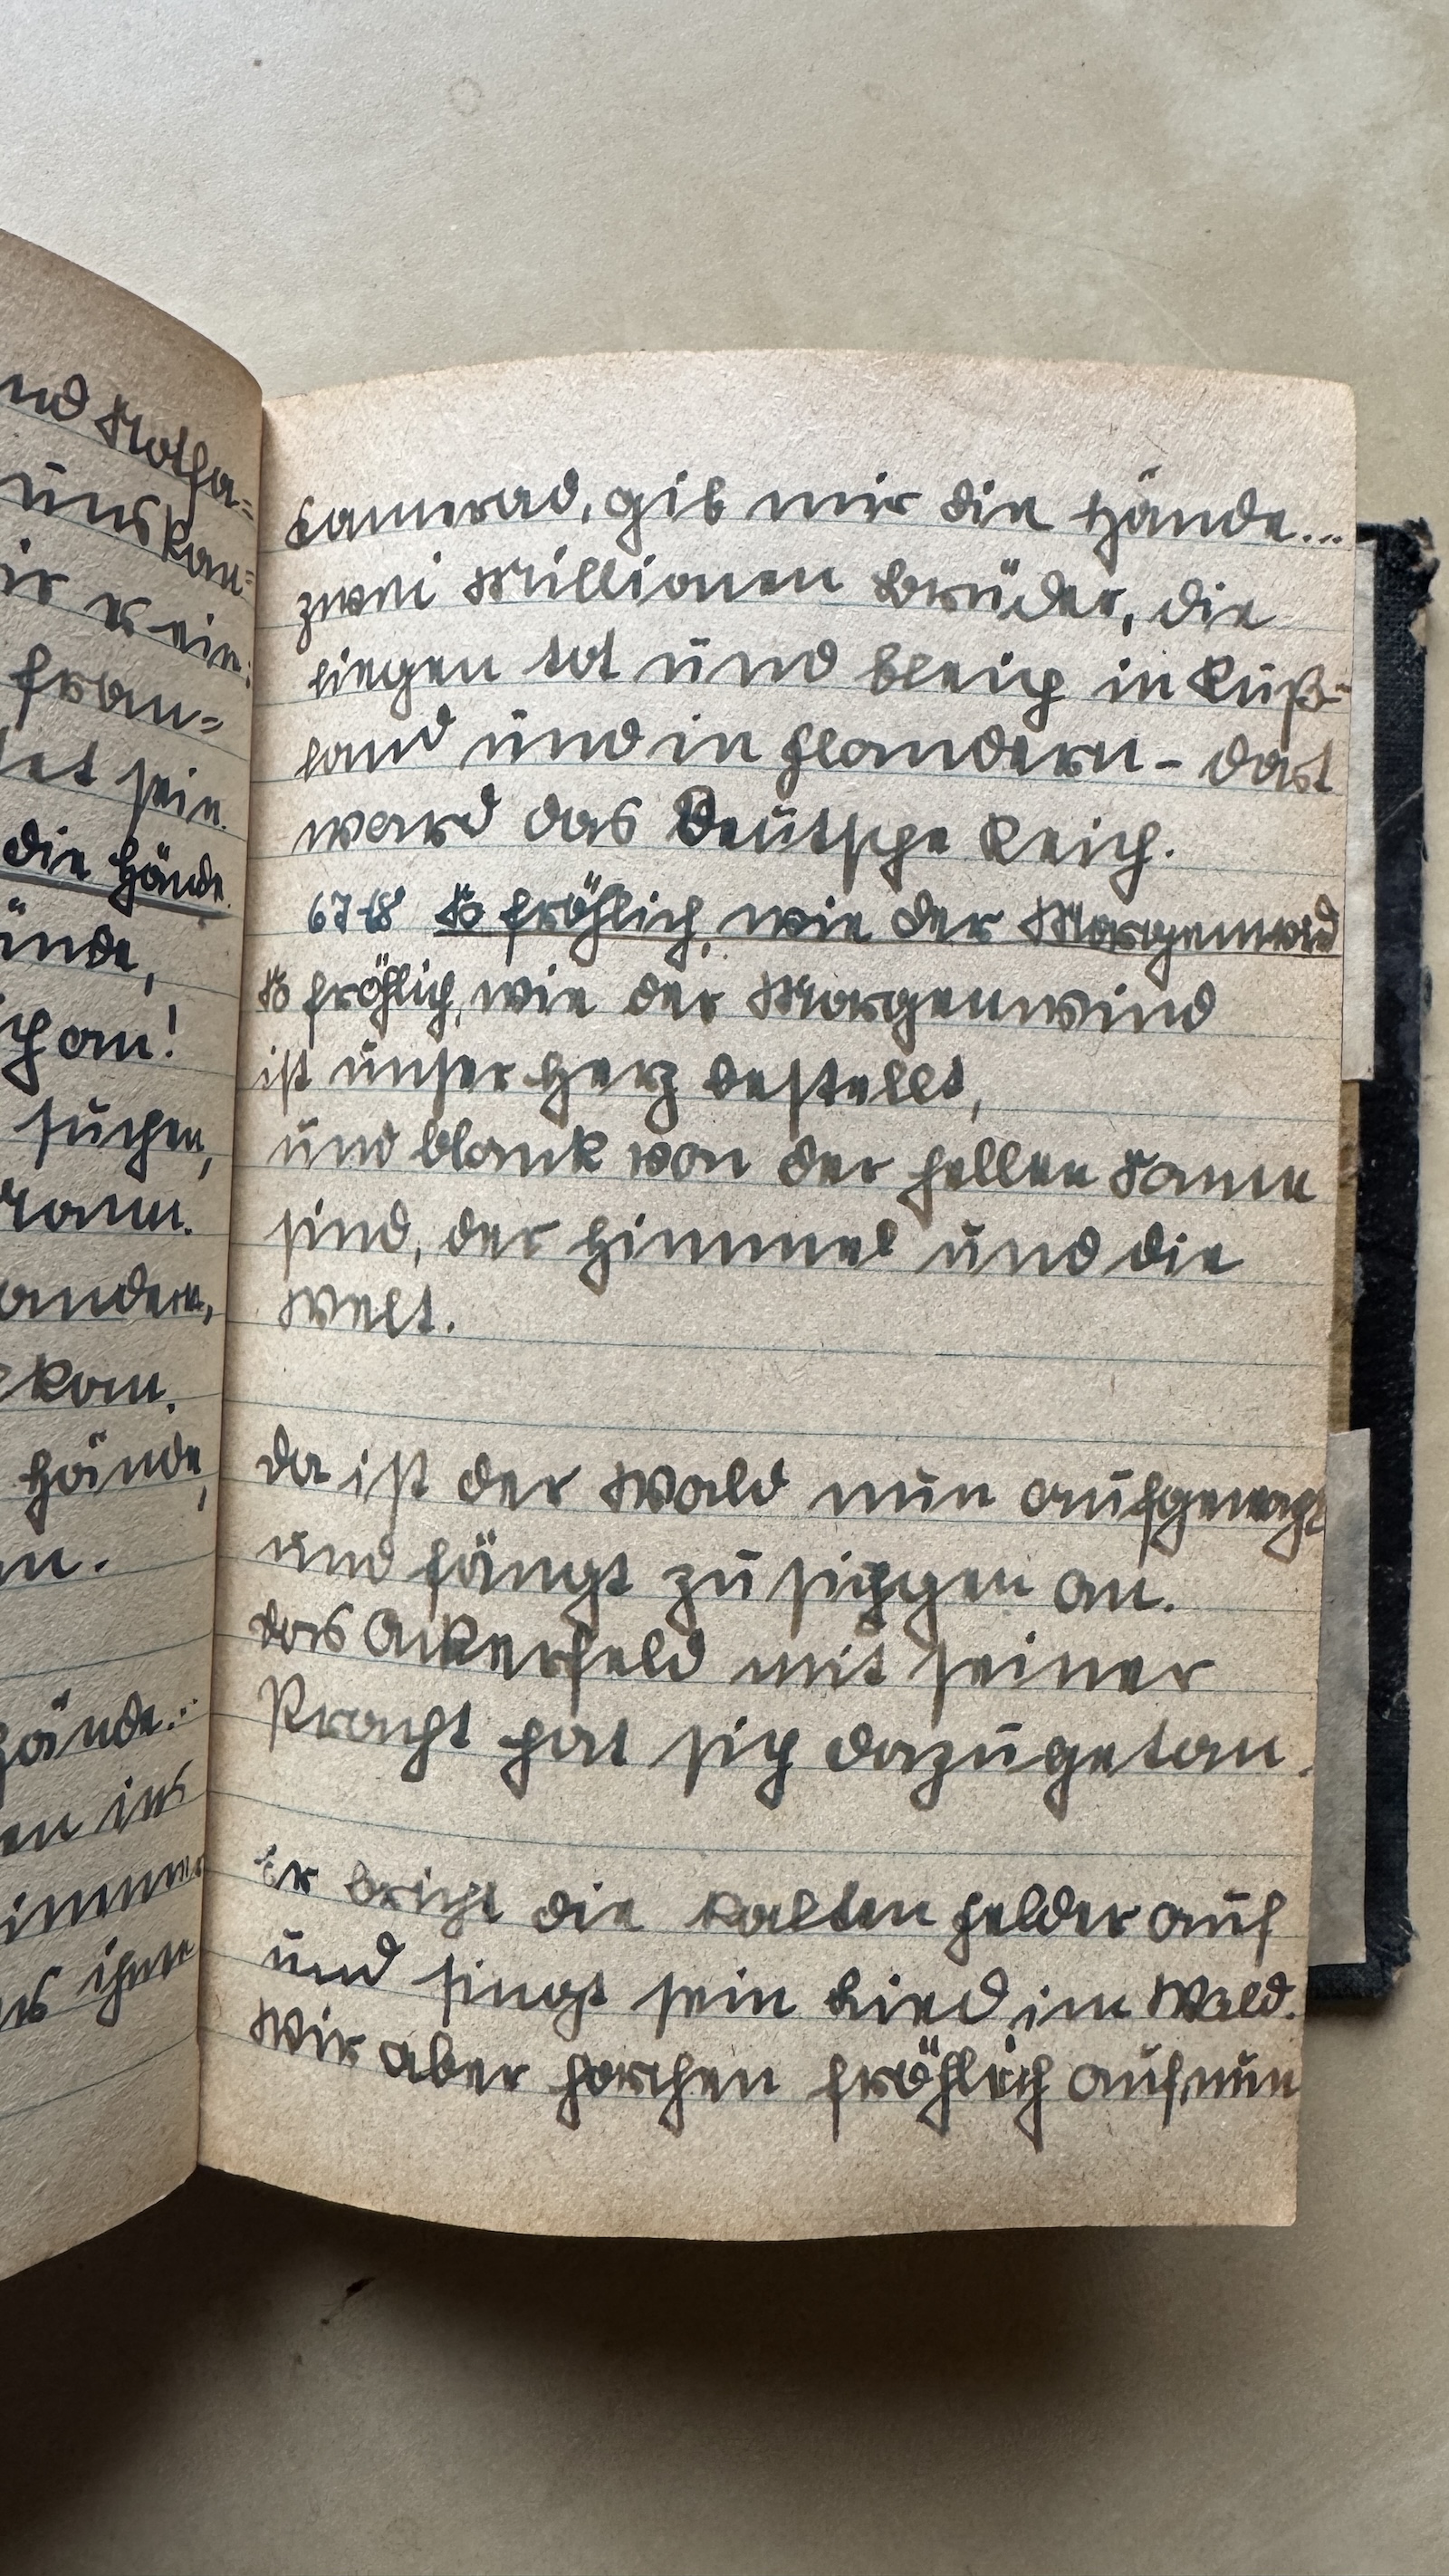 nd Notha-
uns kan-
ir v ein:
fran-
tet sein.
die Hände.
ände,
ich an!
suchen,
Mann.
andern,
kom.
Hände,
n.
Hände.:
en ins
immer
ihne
Camerad, gib mir die Hände...
zwei Millionen Brüder, die
liegen tot und bleich in Ruß-
land und in Flandern - das
ward das Deutsche Reich.
67 So fröhlich, wie der Morgenwid
So fröhlich, wie der Morgenwind
ist unser Herz bestellt,
und blank von der hellen Sonne
sind, der Himmel und die
Welt.
Da ist der Wald nun aufgewacht
und fängt zu singen an.
das Ackerfeld mit seiner
Pracht hat sich dazugetan.
Er bricht die kalten Felder auf
und singt sein Lied im Wald.
Wir aber horchen fröhlich auf, nun